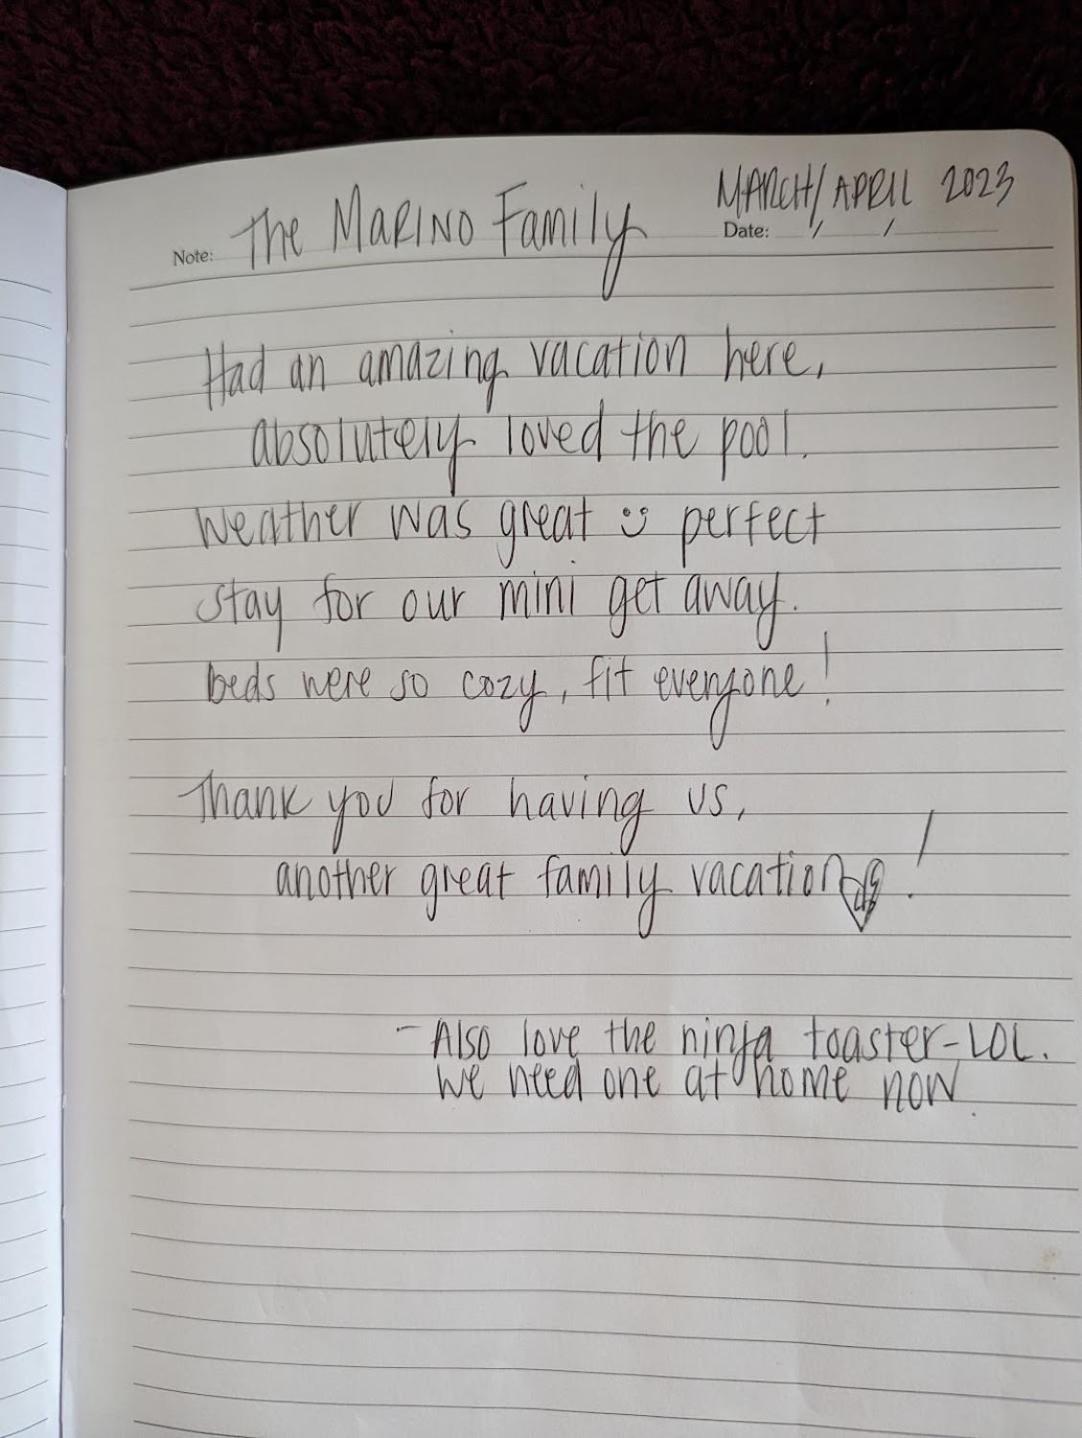 Note: The MARINO Family
MARCH/APRIL 2023
Date: / /
Had an amazing vacation here,
absolutely loved the pool.
Weather was great :) perfect
stay for our mini get away.
beds were so cozy, fit everyone!
Thank you for having us,
another great family vacation ♡!
- Also love the ninja toaster-LOL.
We need one at home now.